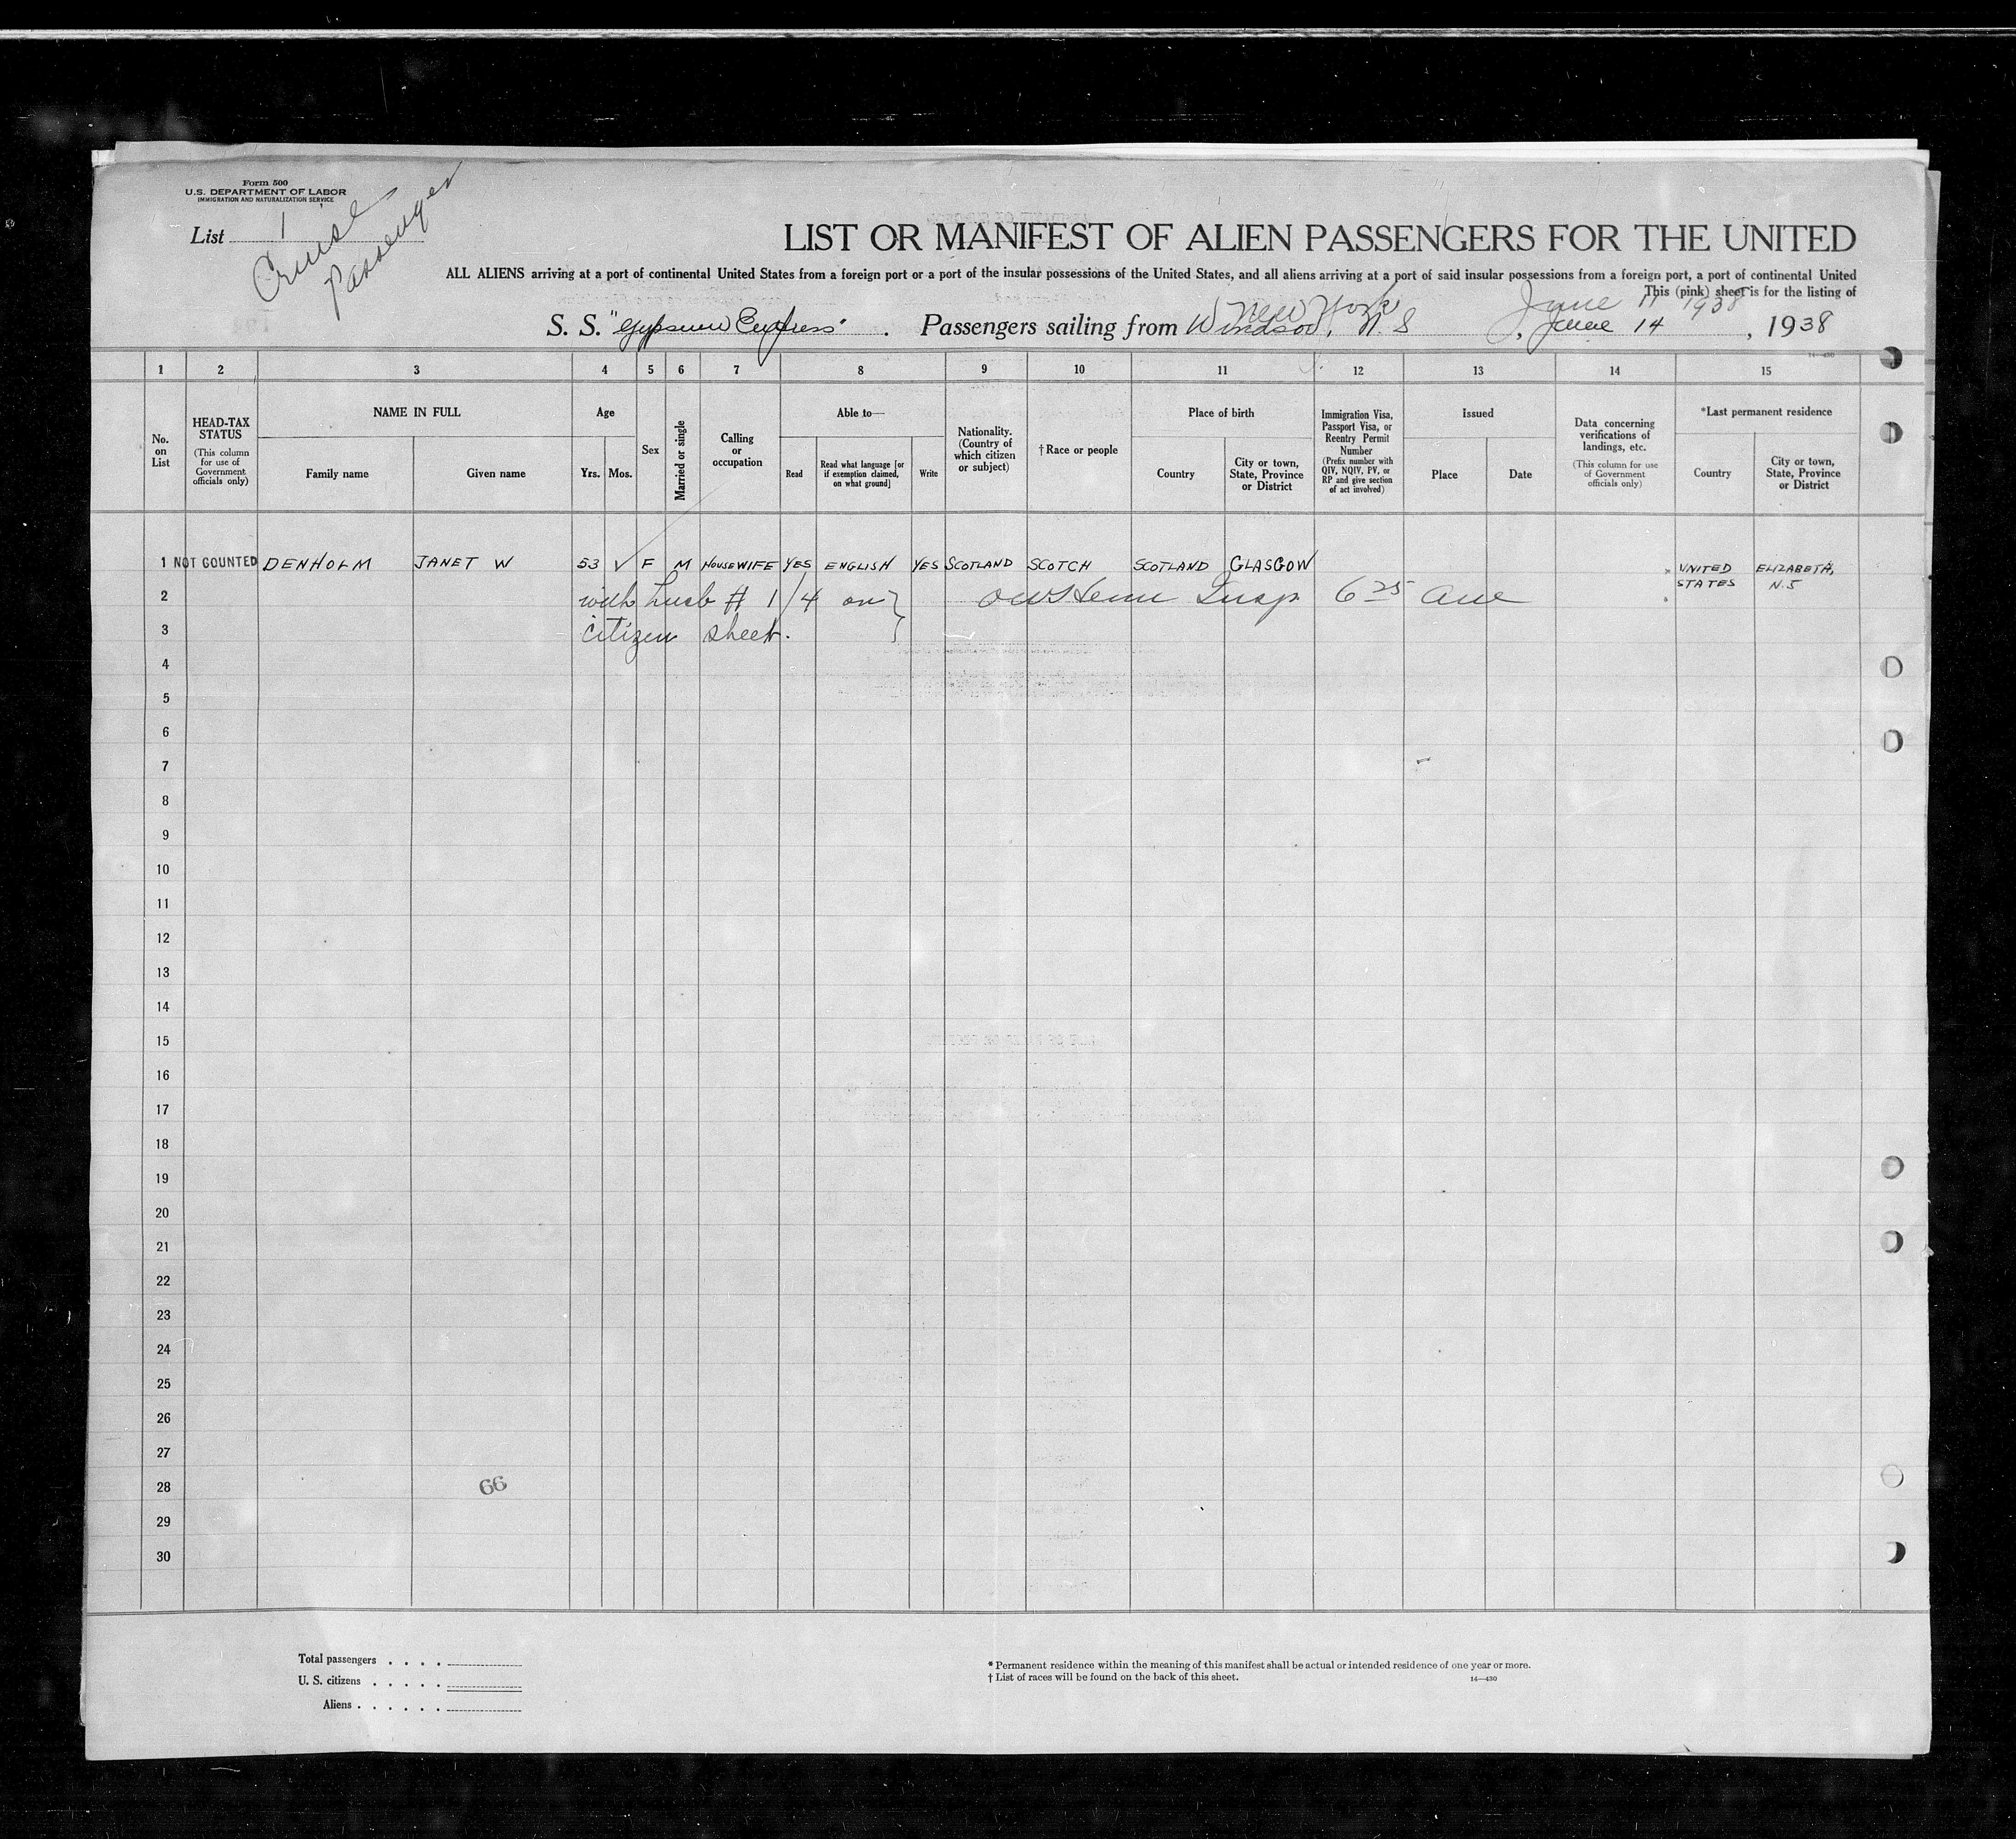 Form 500
U.S. DEPARTMENT OF LABOR
IMMIGRATION AND NATURALIZATION SERVICE
List 1
Cruise
Passenger
LIST OR MANIFEST OF ALIEN PASSENGERS FOR THE UNITED
ALL ALIENS arriving at a port of continental United States from a foreign port or a port of the insular possessions of the United States, and all aliens arriving at a port of said insular possessions from a foreign port, a port of continental United
This (pink) sheet is for the listing of
New York June 11 1938
S. S. "Gypsum Express". Passengers sailing from Windsor, N. S, June 14, 1938
14—430
1 2 3 4 5 6 7 8 9 10 11 12 13 14 15
No. on List
HEAD-TAX STATUS
(This column for use of Government officials only)
NAME IN FULL
Family name
Given name
Age
Yrs.
Mos.
Sex
Married or single
Calling or occupation
Able to—
Read
Read what language [or if exemption claimed, on what ground]
Write
Nationality. (Country of which citizen or subject)
† Race or people
Place of birth
Country
City or town, State, Province or District
Immigration Visa, Passport Visa, or Reentry Permit Number
(Prefix number with QIV, NQIV, PV, or RP and give section of act involved)
Issued
Place
Date
Data concerning verifications of landings, etc.
(This column for use of Government officials only)
*Last permanent residence
Country
City or town, State, Province or District
1 NOT COUNTED DENHOLM JANET W 53 ✓ F M HOUSEWIFE YES ENGLISH YES SCOTLAND SCOTCH SCOTLAND GLASGOW UNITED STATES ELIZABETH, N.J
2 with husb # 1/4 on Insp 6 25 Ave
3 citizen sheet.
4
5
6
7
8
9
10
11
12
13
14
15
16
17
18
19
20
21
22
23
24
25
26
27
28 66
29
30
Total passengers . . . .
U. S. citizens . . . . .
Aliens . . . . . .
* Permanent residence within the meaning of this manifest shall be actual or intended residence of one year or more.
† List of races will be found on the back of this sheet.
14—430